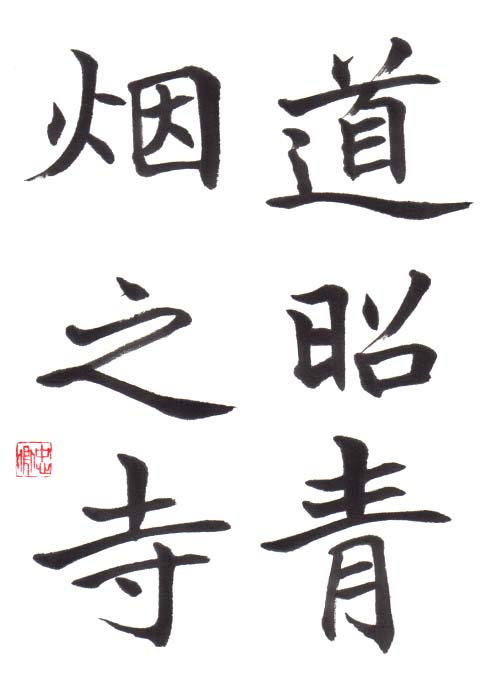 道昭青
烟之寺